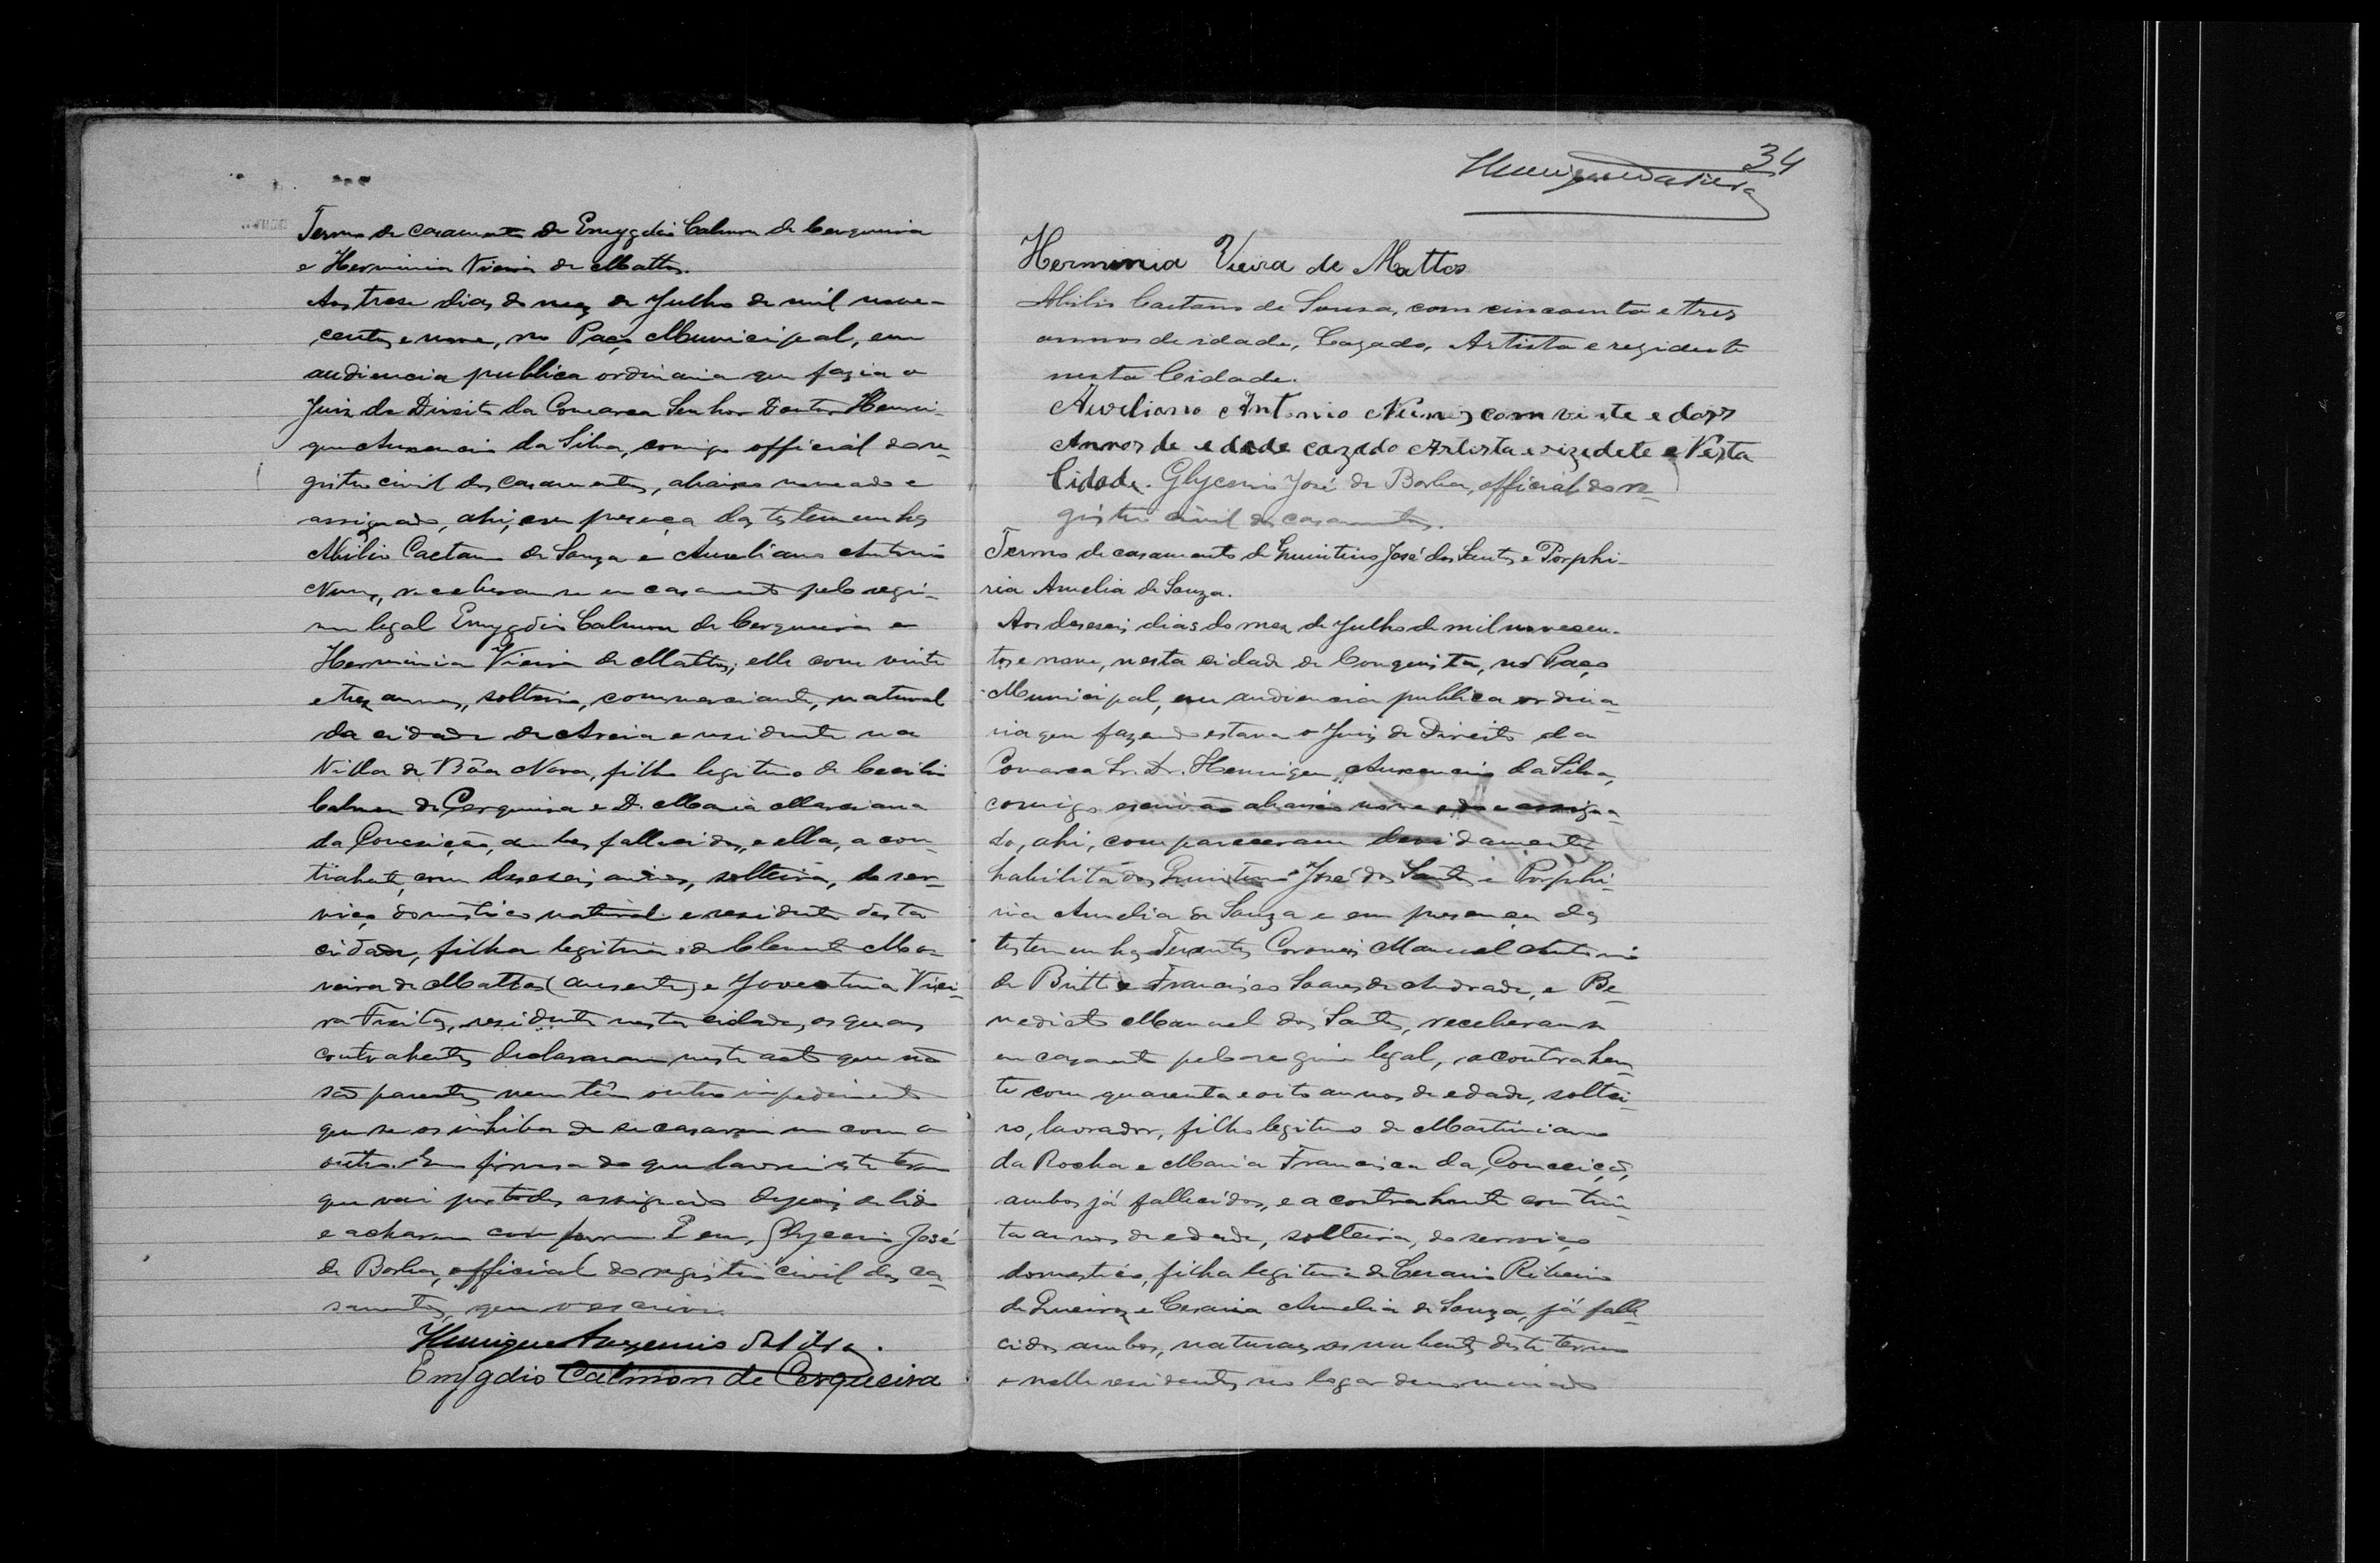 Termo de casamento de Emygdio Calmon de Cerqueira
e Herminia Vieira de Mattos.
Aos trese dias do mez de Julho de mil nove-
centos e nove, no Paço Municipal, em
audiencia publica ordinaria que fazia o
Juiz de Direito da Comarca Senhor Doutor Henri-
que Auxencio da Silva, comigo official do re-
gistro civil dos casamentos, abaixo nomeado e
assignado, ahi, em presença das testemunhas
Abilio Caetano de Souza e Aureliano Antonio
Nunes, receberam-se em casamento pelo regi-
men legal Emygdio Calmon de Cerqueira e
Herminia Vieira de Mattos; elle com vinte
e trez annos, solteiro, commerciante, natural
da cidade de Areia e residente na
Villa de Bôa Nova, filho legitimo de Cecilio
Calmon de Cerqueira e D. Maria Marciana
da Conceição, ambos fallecidos, e ella, a con-
trahente, com deseseis annos, solteira, do ser-
viço domestico natural e residente desta
cidade, filha legitima de Clemente Mo-
reira de Mattos (ausente) e Joventina Viei-
ra Freitas, residente nesta cidade, os quaes
contrahentes declararam neste acto que não
são parentes nem têm outro impedimento
que se os inhiba de se casarem um com o
outro. Em firmesa do que lavrei este termo
que vai por todos assignado depois de lido
e acharem conforme. E eu, Glycerio José
de Borba, official do registro civil dos ca-
samentos, que o escrevi.
Henrique Auxencio da Silva.
Emygdio Calmon de Cerqueira
34
Herminia Vieira de Mattos
Abilio Caetano de Sousa, com cincoenta e tres
annos de idade, Cazado, Artista e rezidente
nesta Cidade.
Aureliano Antonio Nunis com vinte e dois
Annos de edade cazado Artista e rizedete e Nesta
Cidade. Glycerio José de Borba, official do re-
gistro civil dos casamentos.
Termo de casamento de Quintino José dos Santos e Porphi-
ria Amelia de Souza.
Aos deseseis dias do mez de Julho de mil novecen-
tos e nove, nesta cidade de Conquista, no Paço
Municipal, em audiencia publica ordina-
ria que fazendo estava o Juiz de Direito da
Comarca Sr. Dr. Henrique Auxencio da Silva,
comigo escrivão abaixo nomeado e assigna-
do, ahi, compareceram devidamente
habilitados Quintino José dos Santos e Porphi-
ria Amelia de Souza e em presença das
testemunhas Tenentes Coroneis Manuel Antonio
de Britto e Francisco Soares de Andrade, e Be-
nedicto Manuel dos Santos, receberam-se
em casamento pelo regimen legal, o contrahen-
te com quarenta e oito annos de edade, soltei-
ro, lavrador, filho legitimo de Martiniano
da Rocha e Maria Francisca da Conceição,
ambos já fallecidos, e a contrahente com trin-
ta annos de edade, solteira, do serviço
domestico, filha legitima de Cesario Ribeiro
de Queiroz e Cesaria Amelia de Souza, já falle-
cidos ambos, naturaes os nubentes deste termo
e nelle residentes no logar denominado